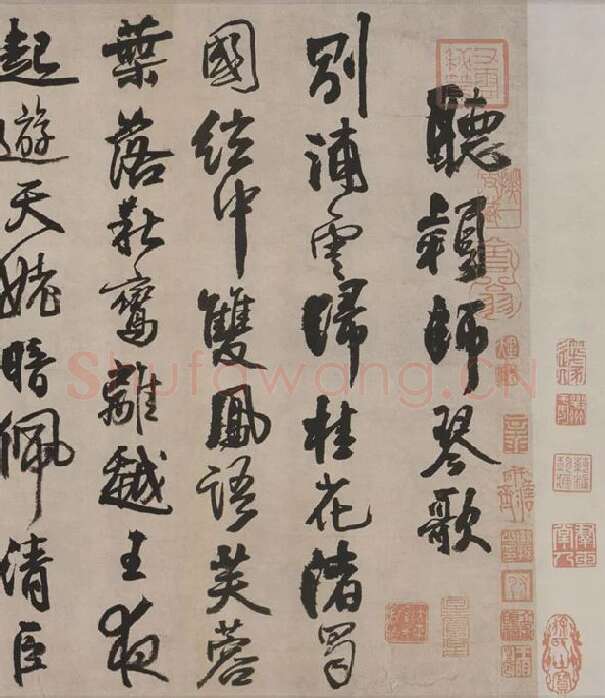 聽穎師琴歌
別浦雲歸桂花渚蜀
國絃中雙鳳語芙蓉
葉落秋鸞離越王夜
起遊天姥暗佩清臣
Shufawang.CN